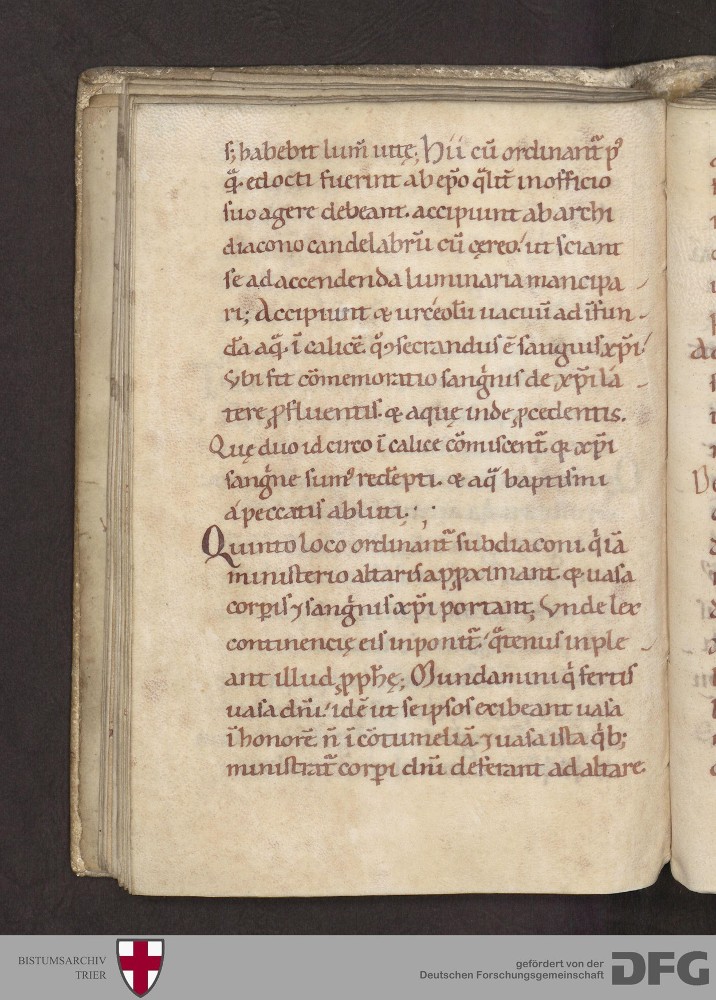 s; habebit lum̄ uitę; Hii cū ordinant᷑ p᷒
q̄ᷓ. edocti fuerint ab ep̄o qͣlit᷑ in officio
suo agere debeant. accipiunt ab archi
diacono candelabrū cū cęreo. ut sciant
se ad accendenda luminaria mancipa-
ri; Accipiunt & urceolū uacuū ad īfun-
dā aqͣ. ī calicē. qͦ ꝯsecrandus ē sanguis xp̄i.
Vbi fit cōmemoratio sangͥnis de xp̄i la-
tere ꝓfluentis. & aquę inde ꝓcedentis.
Quę duo idcirco ī calice cōmiscent᷑. q̄ xp̄i
sangͥne sum᷒ redēpti. & aqͣ baptismi
a peccatis abluti.
Quinto loco ordinant᷑ subdiaconi. qͥ iā
ministerio altaris apꝓximant. & uasa
corꝑis ⁊ sangͥnis xp̄i portant; Vnde lex
continencię eis inponit᷑. qͣtenus inple-
ant illud ꝓph̄ę; Mundamini qͥ fertis
uasa dn̄i. idē ut se ipsos exibeant uasa
ī honorē n̄ ī cōtumeliā. ⁊ uasa ista qͥb;
ministrat᷑ corꝑi dn̄i deferant ad altare.
BISTUMSARCHIV
TRIER
gefördert von der
Deutschen Forschungsgemeinschaft
DFG